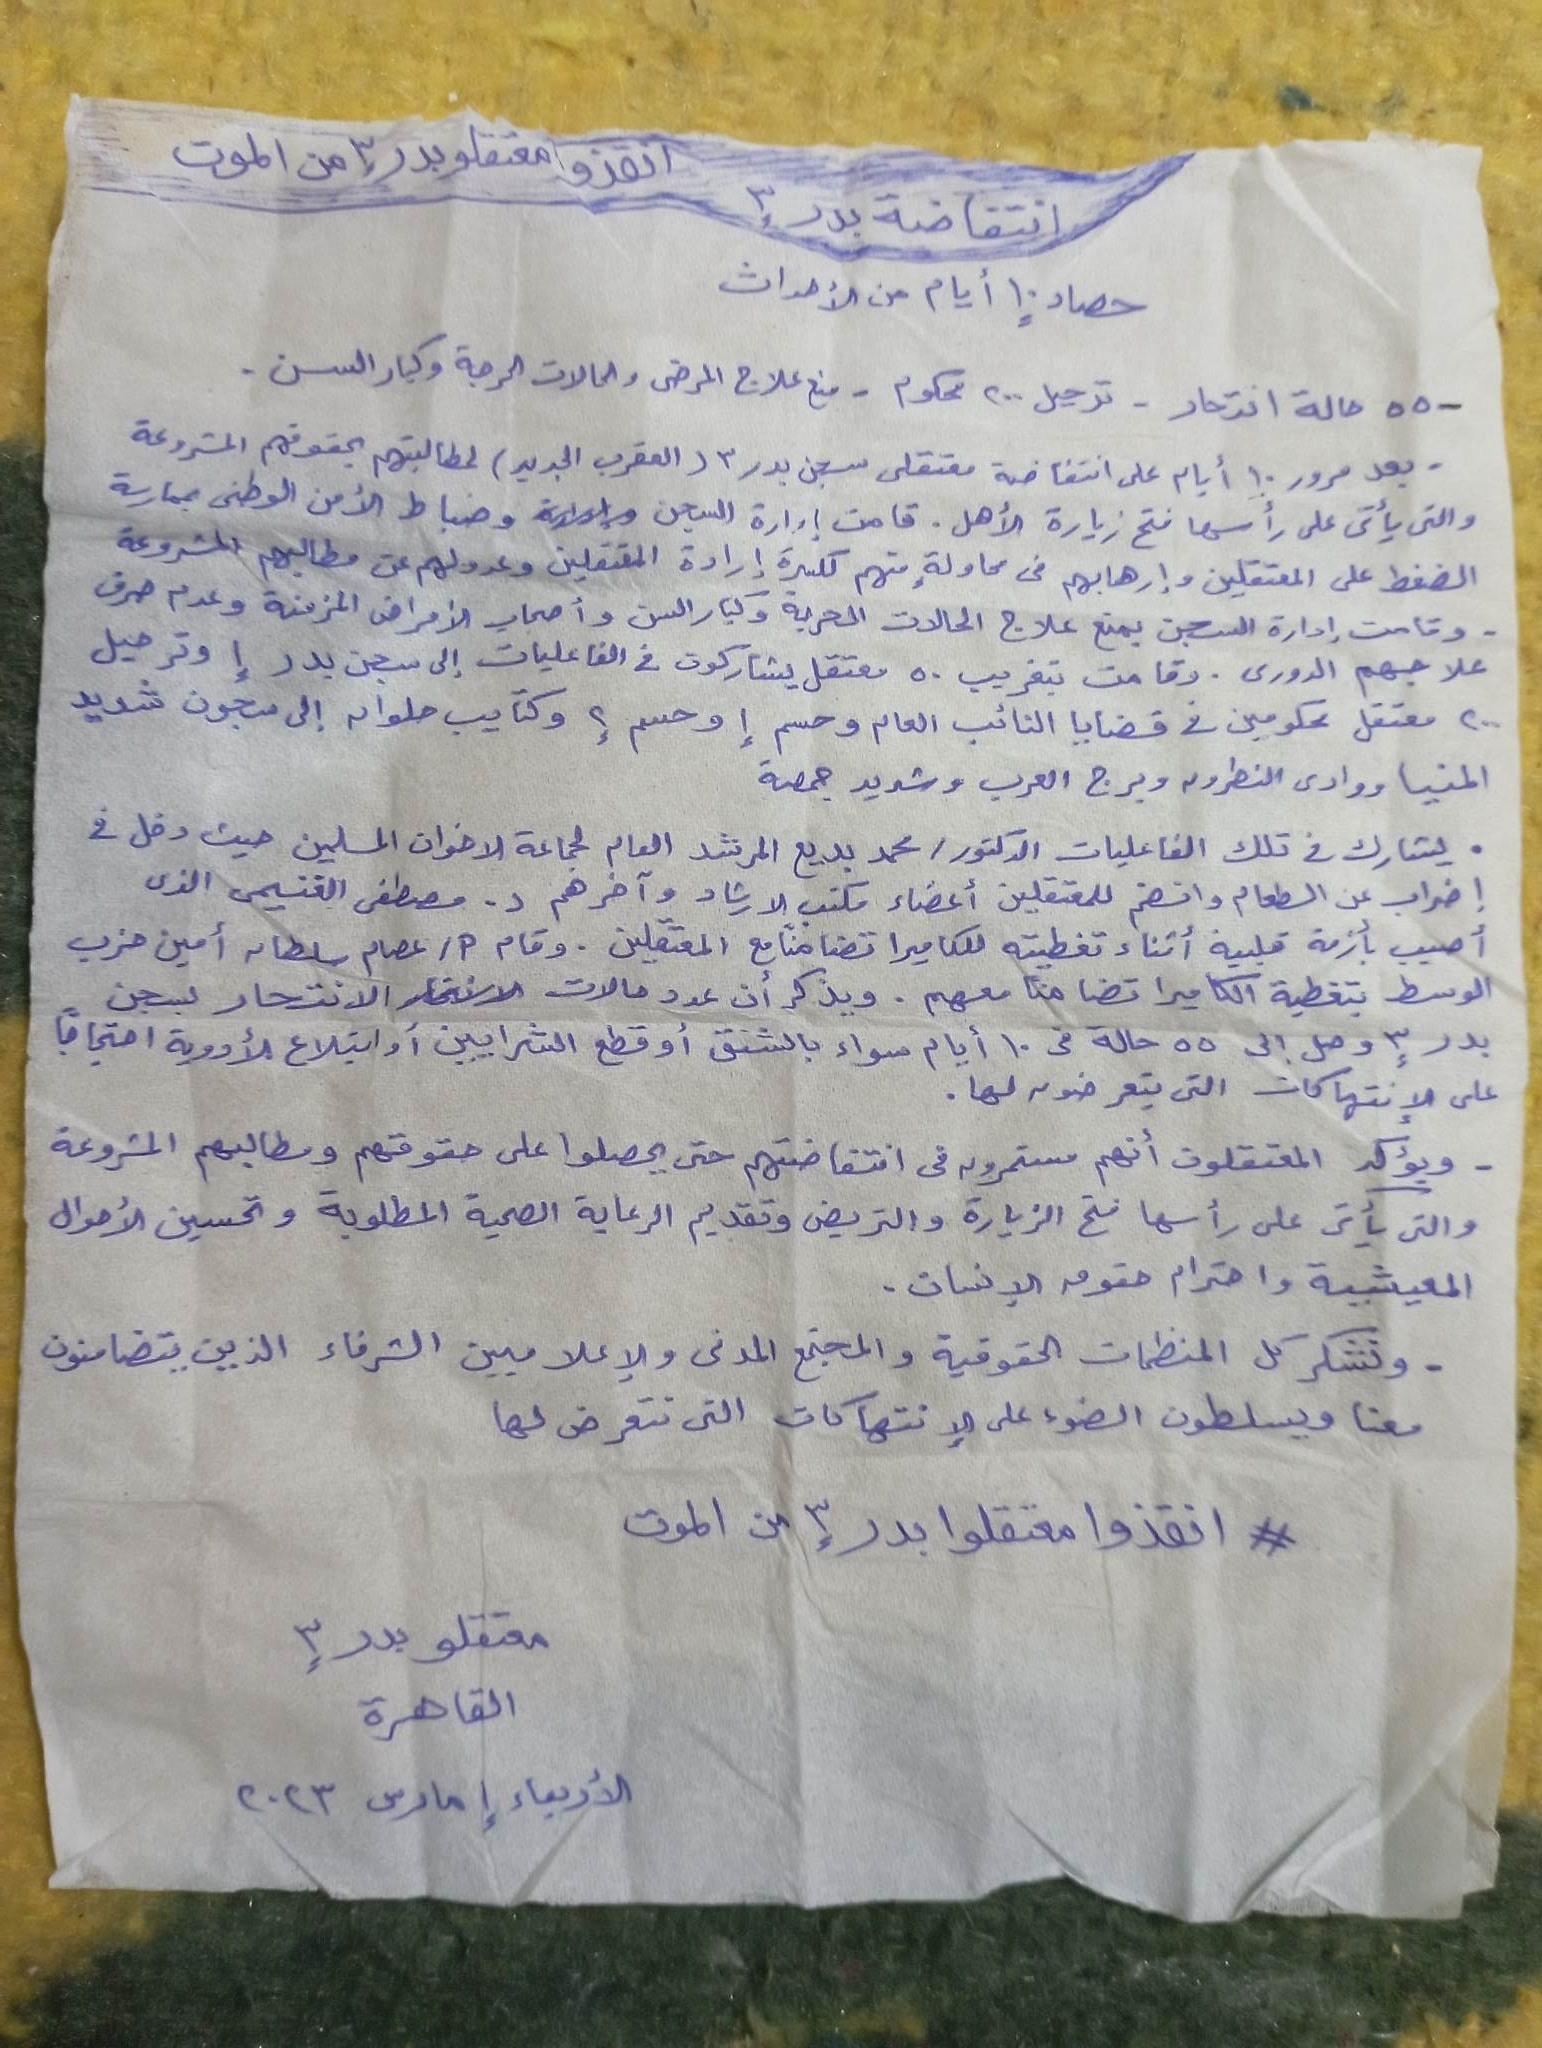 انقذوا معتقلو بدر ٣ من الموت
انتفاضة بدر ٣
حصاد ١٠ أيام من الأحداث
- ٥٥ حالة انتحار - ترحيل ٢٠٠ محكوم - منع علاج المرضى والحالات الحرجة وكبار السن -
- بعد مرور ١٠ أيام على انتفاضة معتقلى سجن بدر ٣ (العقرب الجديد) لمطالبتهم بحقوقهم المشروعة
والتى يأتى على رأسها فتح زيارة الأهل . قامت إدارة السجن وضباط الأمن الوطنى بممارسة
الضغط على المعتقلين وإرهابهم فى محاولة منهم لكسرة إرادة المعتقلين وعدولهم عن مطالبهم المشروعة
- وقامت إدارة السجن بمنع علاج الحالات الحرجة وكبار السن وأصحاب الأمراض المزمنة وعدم صرف
علاجهم الدورى . وقامت بتغريب ٥٠ معتقل يشاركون فى الفاعليات إلى سجن بدر ١ وترحيل
٢٠٠ معتقل محكومين فى قضايا النائب العام وحسم ١ وحسم ٢ وكتايب حلوان إلى سجون شديد
المنيا ووادى النطرون وبرج العرب وشديد جمصة
• يشارك فى تلك الفاعليات الدكتور/ محمد بديع المرشد العام لجماعة الاخوان المسلمين حيث دخل فى
إضراب عن الطعام وانضم للمعتقلين أعضاء مكتب الارشاد وآخرهم د. مصطفى الغنيمى الذى
أصيب بأزمة قلبية أثناء تغطيته للكاميرا تضامنًا مع المعتقلين . وقام م/ عصام سلطان أمين حزب
الوسط بتغطية الكاميرا تضامنًا معهم . ويذكر أن عدد حالات الانتحار بسجن
بدر ٣ وصل إلى ٥٥ حالة فى ١٠ أيام سواء بالشنق أو قطع الشرايين أو ابتلاع الأدوية احتجاجًا
على الإنتهاكات التى يتعرضون لها .
- ويؤكد المعتقلون أنهم مستمرون فى انتفاضتهم حتى يحصلوا على حقوقهم ومطالبهم المشروعة
والتى يأتى على رأسها فتح الزيارة والتريض وتقديم الرعاية الصحية المطلوبة وتحسين الأحوال
المعيشية واحترام حقوق الإنسان .
- ونشكر كل المنظمات الحقوقية والمجتمع المدنى والإعلاميين الشرفاء الذين يتضامنون
معنا ويسلطون الضوء على الإنتهاكات التى نتعرض لها
# انقذوا معتقلوا بدر ٣ من الموت
معتقلو بدر ٣
القاهرة
الأربعاء ١ مارس ٢٠٢٣